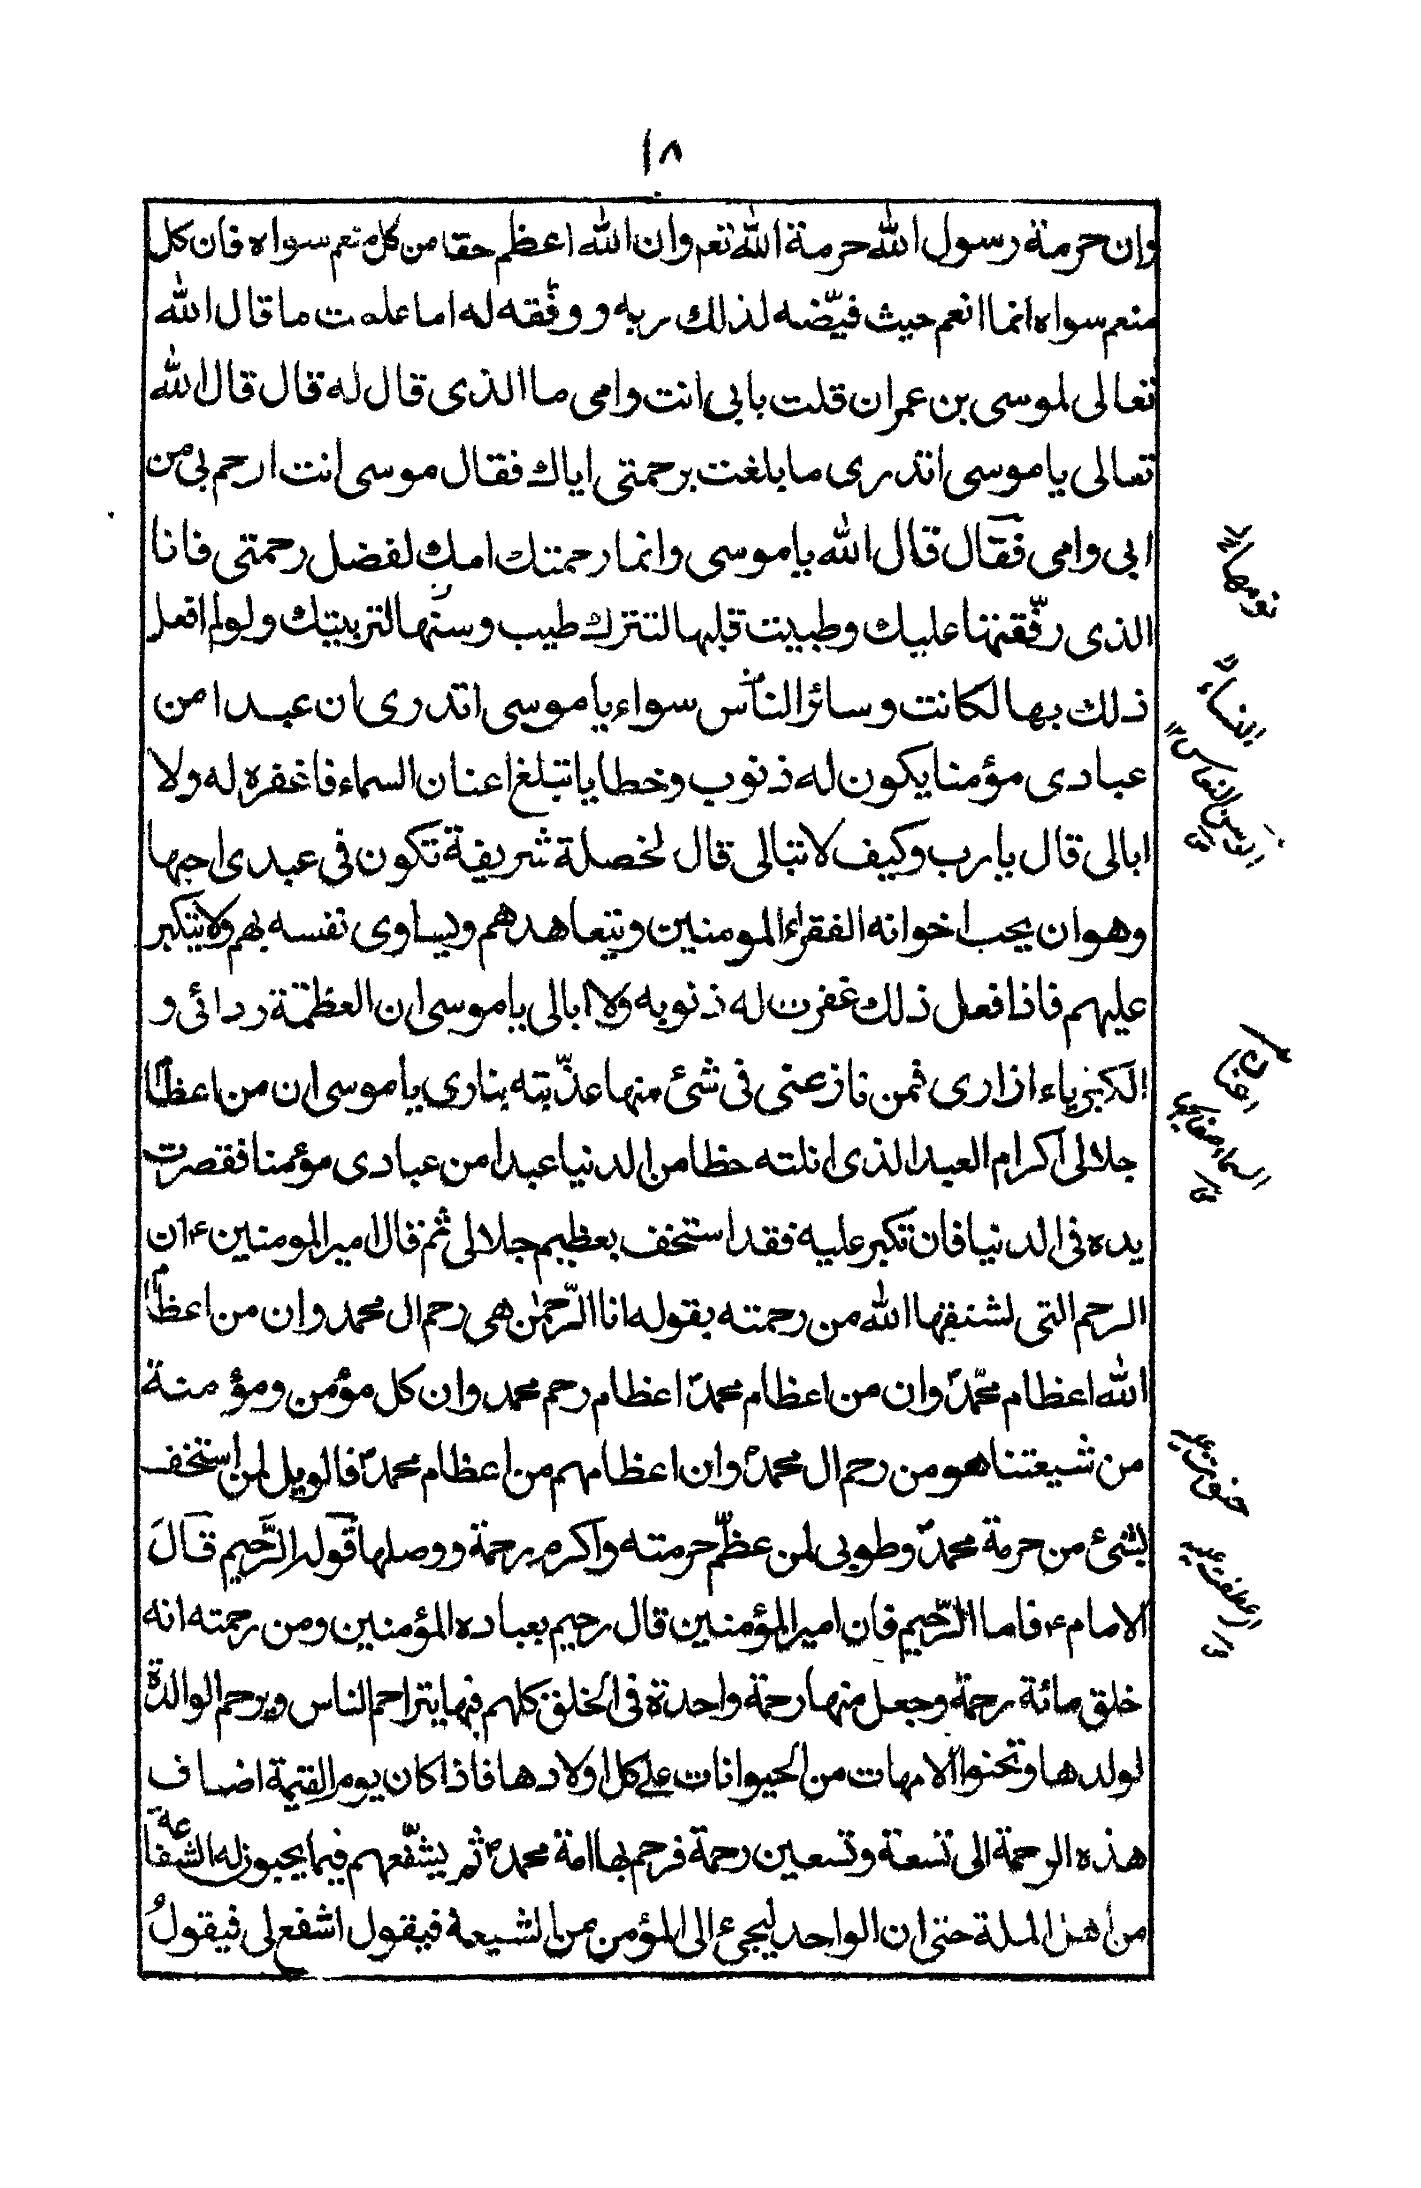 ١٨
وإن حرمة رسول الله حرمة الله تعم وان الله اعظم حقا من كل منعم سواه فان كل
منعم سواه انما انعم حيث قيّضه لذلك ربه و وفّقه له اما علمت ما قال الله
تعالى لموسى بن عمران قلت بابى انت وامى ما الذى قال له قال قال الله
تعالى يا موسى اتدرى ما بلغت برحمتى اياك فقال موسى انت ارحم بى من
ابى وامى فقال قال الله يا موسى وانما رحمتك امك لفضل رحمتى فانا
الذى رقّقتها عليك وطيبت قلبها لتترك طيب وسنها لتربيتك ولو لم افعل
ذلك بها لكانت وسائر النّاس سواء يا موسى اتدرى ان عبدا من
عبادى مؤمنا يكون له ذنوب وخطايا تبلغ اعنان السماء فاغفره له ولا
ابالى قال يا رب وكيف لا تبالى قال لخصلة شريفة تكون فى عبدى احبها
وهو ان يحب اخوانه الفقراء المومنين ويتعاهدهم ويساوى نفسه بهم ولا يتكبر
عليهم فاذا فعل ذلك غفرت له ذنوبه ولا ابالى يا موسى ان العظمة ردائى و
الكبرياء ازارى فمن نازعنى فى شئ منها عذّبته بنارى يا موسى ان من اعظام
جلالى اكرام العبد الذى انلته حظا من الدنيا عبدا من عبادى مؤمنا فقصرت
يده فى الدنيا فان تكبر عليه فقد استخف بعظيم جلالى ثم قال امير المومنين ٤ ان
الرحم التى اشتقها الله من رحمته بقوله انا الرّحمٰن هى رحم ال محمد وان من اعظام
الله اعظام محمّد وان من اعظام محمد اعظام رحم محمد وان كل مؤمن ومؤمنة
من شيعتنا هو من رحم ال محمد وان اعظامهم من اعظام محمد فالويل لمن استخف
بشئ من حرمة محمد وطوبى لمن عظّم حرمته واكرم رحمة ووصلها قوله الرَّحيم قال
الامام ٤ فاما الرّحيم فان امير المؤمنين قال رحيم بعباده المؤمنين ومن رحمته انه
خلق مائة رحمة وجعل منها رحمة واحدة فى الخلق كلهم فبها يتراحم الناس ويرحم الوالدة
لولدها وتحنوا الامهات من الحيوانات على كل اولادها فاذا كان يوم القيمة اضاف
هذه الرحمة الى تسعة وتسعين رحمة فرحم بها امة محمد ثم يشفّعهم فيما يحبون له الشفاعة
من اهل الملة حتى ان الواحد ليجئ الى المؤمن من الشيعة فيقول اشفع لى فيقول
نومها
النساء
اعنان
السماء صفايحها